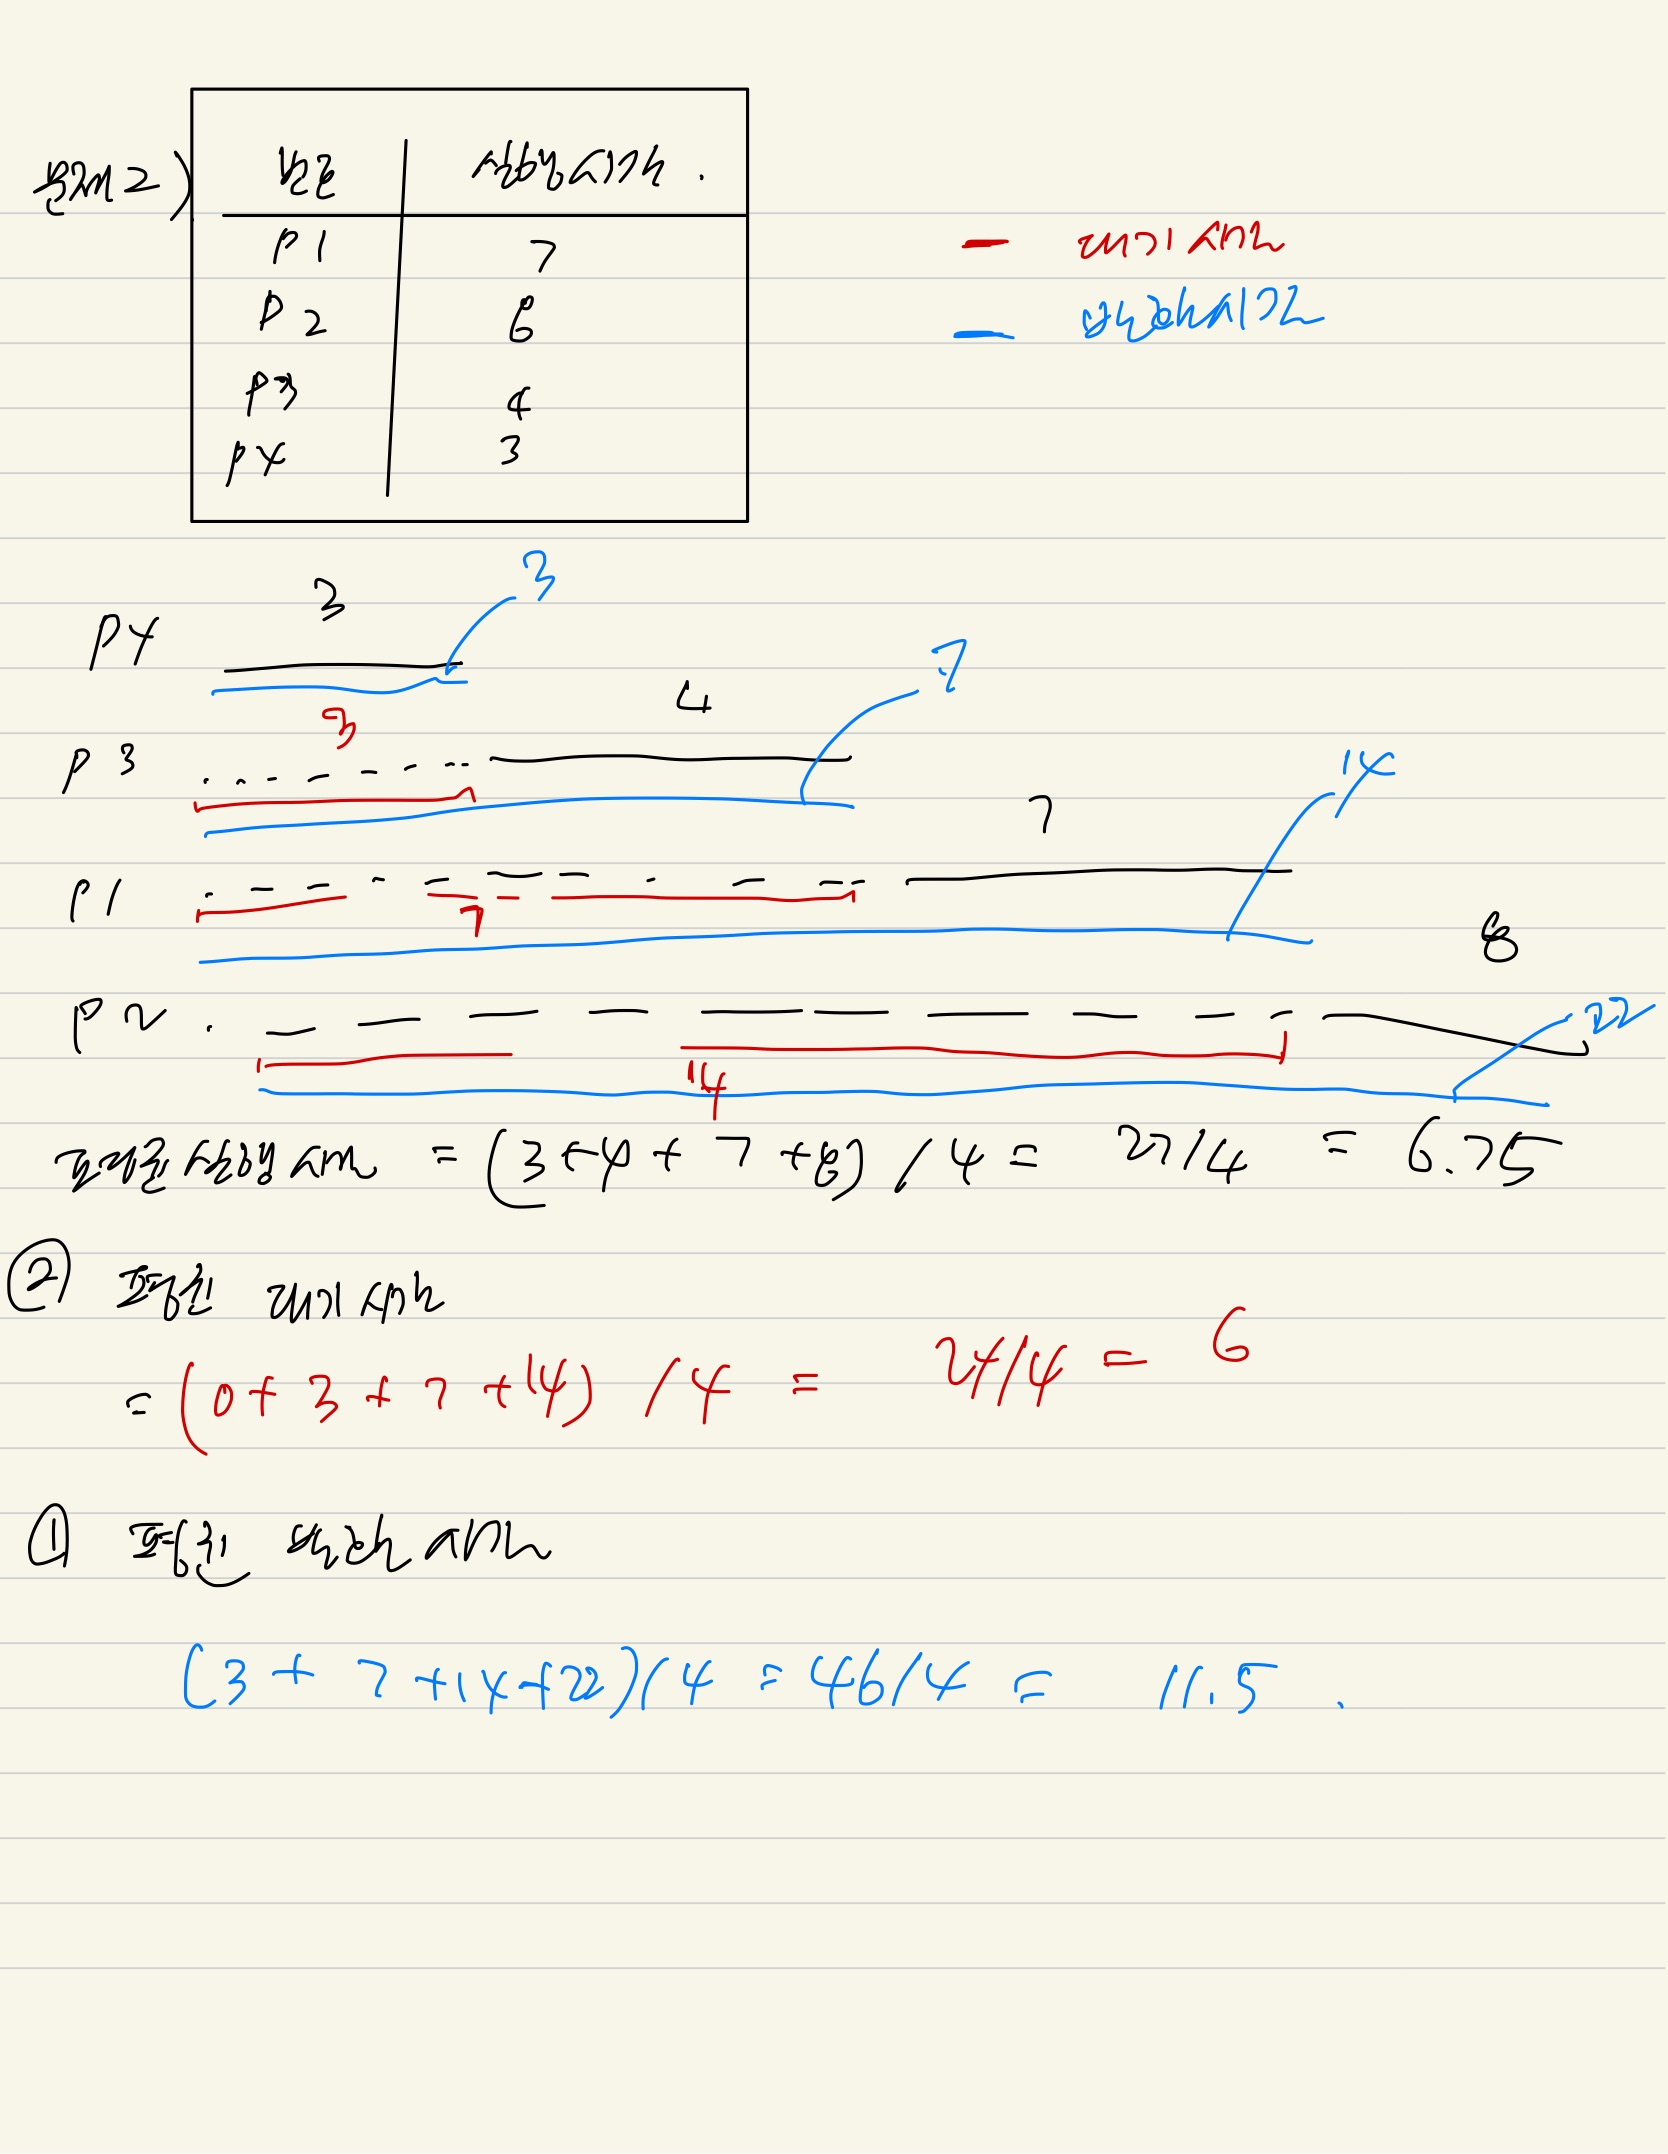 문제2)
번호 실행시간.
P1 7
P2 8
P3 4
P4 3
대기시간
반환시간
P4 3 3
P3 3 4 7
P1 7 7 14
P2 14 8 22
평균 실행시간 = (3+4+7+8)/4 = 27/4 = 6.75
② 평균 대기시간
= (0+3+7+14)/4 = 24/4 = 6
① 평균 반환시간
(3+7+14+22)/4 = 46/4 = 11.5.